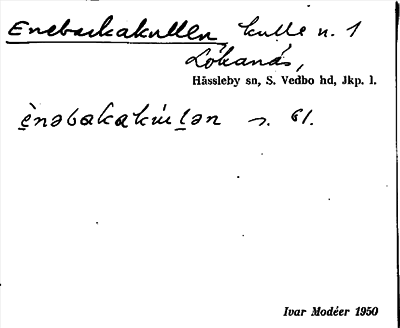 Enebackakullen, kulle n. 1
Lökanäs,
Hässleby sn, S. Vedbo hd, Jkp. l.
è̱nəbakakùḻən s. 61.
Ivar Modéer 1950